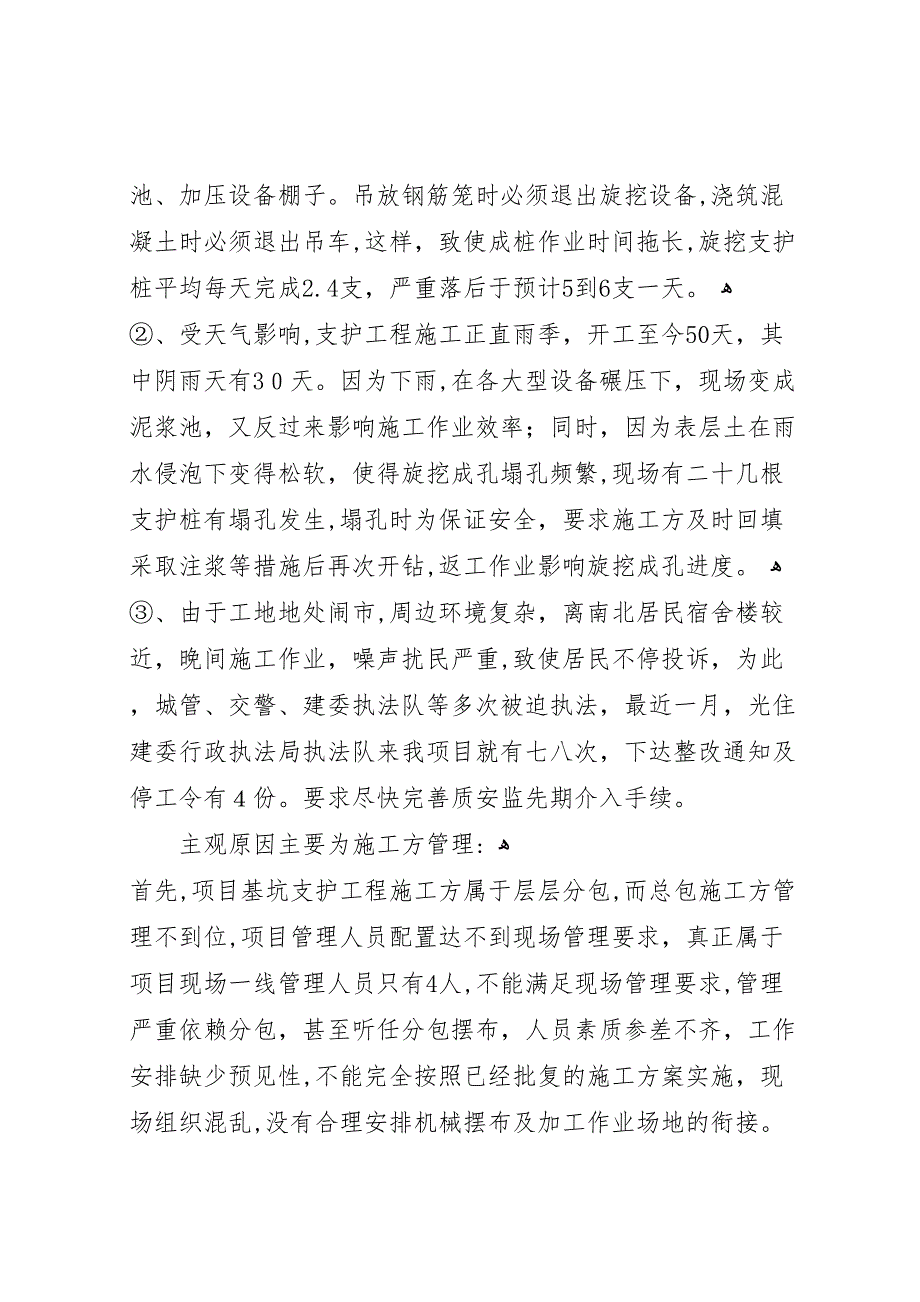 池、加压设备棚子。吊放钢筋笼时必须退出旋挖设备,浇筑混
凝土时必须退出吊车,这样，致使成桩作业时间拖长,旋挖支护
桩平均每天完成2.4支，严重落后于预计5到6支一天。 ﻫ
②、受天气影响,支护工程施工正直雨季，开工至今50天，其
中阴雨天有30天。因为下雨,在各大型设备碾压下，现场变成
泥浆池，又反过来影响施工作业效率；同时，因为表层土在雨
水侵泡下变得松软，使得旋挖成孔塌孔频繁,现场有二十几根
支护桩有塌孔发生,塌孔时为保证安全，要求施工方及时回填
采取注浆等措施后再次开钻,返工作业影响旋挖成孔进度。 ﻫ
③、由于工地地处闹市,周边环境复杂，离南北居民宿舍楼较
近，晚间施工作业，噪声扰民严重,致使居民不停投诉，为此
，城管、交警、建委执法队等多次被迫执法，最近一月，光住
建委行政执法局执法队来我项目就有七八次，下达整改通知及
停工令有4份。要求尽快完善质安监先期介入手续。
主观原因主要为施工方管理: ﻫ
首先,项目基坑支护工程施工方属于层层分包,而总包施工方管
理不到位,项目管理人员配置达不到现场管理要求，真正属于
项目现场一线管理人员只有4人,不能满足现场管理要求,管理
严重依赖分包，甚至听任分包摆布，人员素质参差不齐，工作
安排缺少预见性,不能完全按照已经批复的施工方案实施，现
场组织混乱,没有合理安排机械摆布及加工作业场地的衔接。